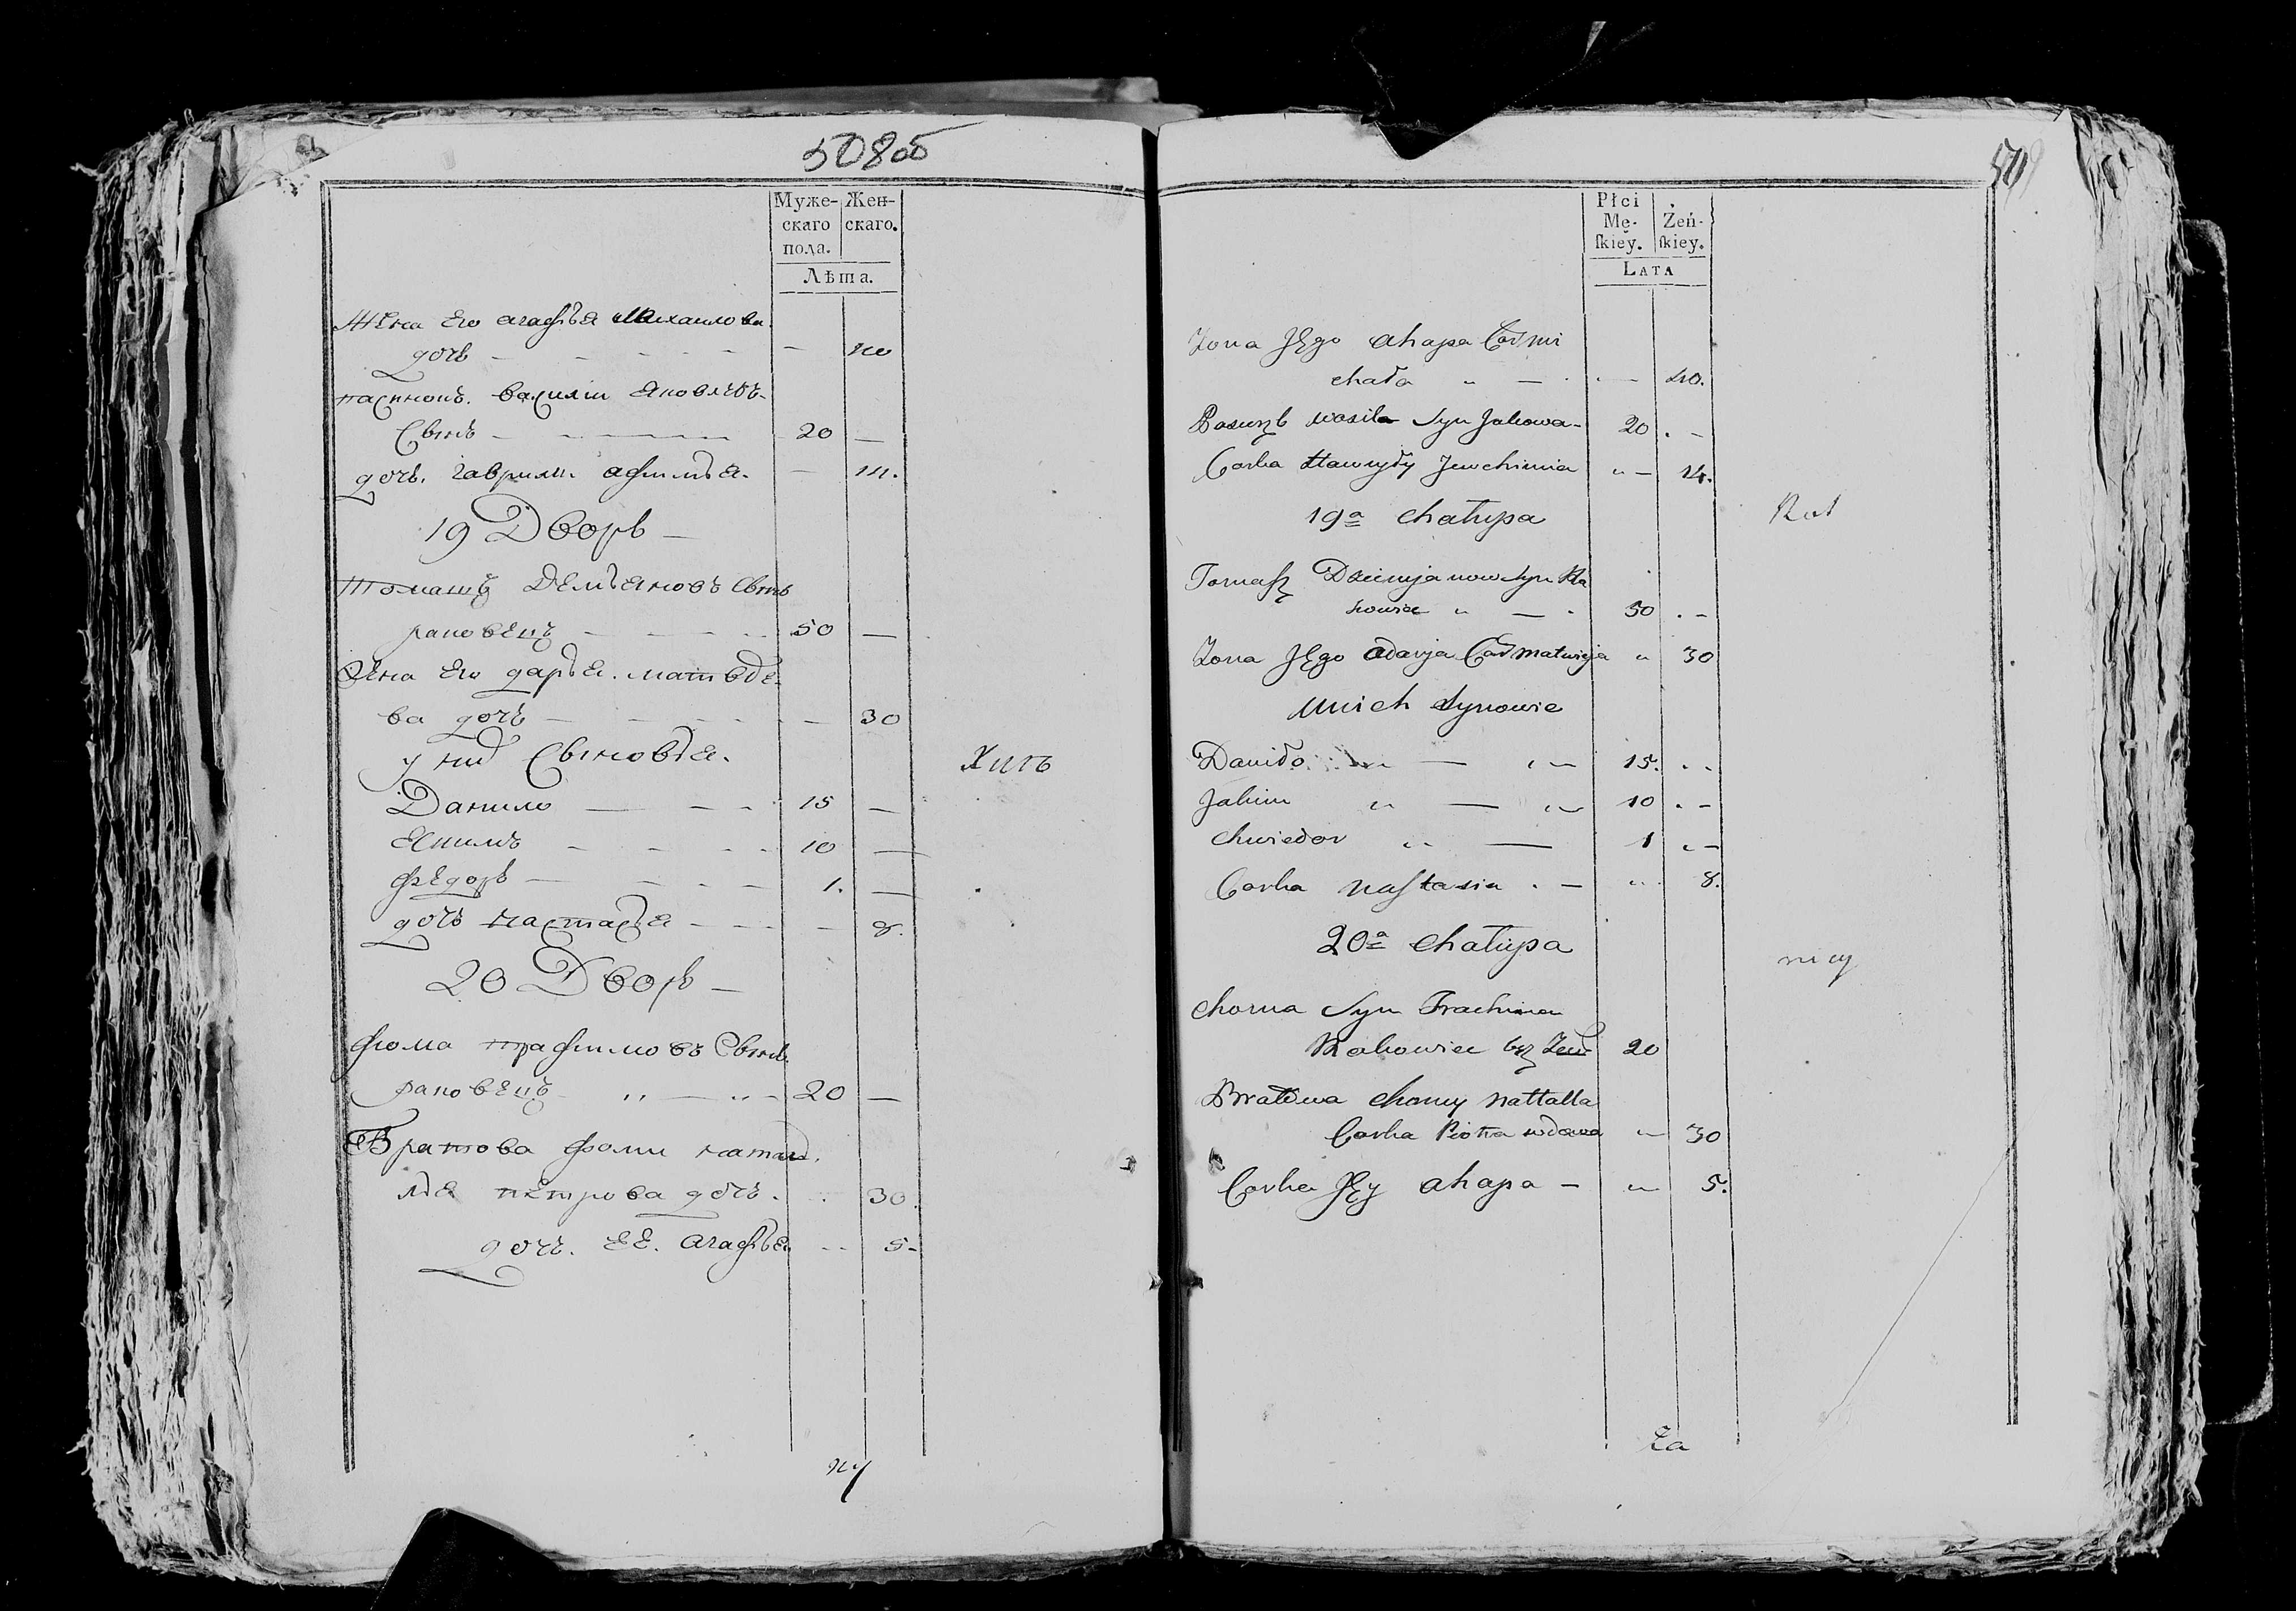 508об
Муже-
скаго
пола.
Жен-
скаго.
Лѣта.
Жена Его агафья Михаилова
дочь — — 40
пасинокъ. василии Яковлевъ
Сынъ — 20 —
дочь. гаврили афимья. — 14.
19 Дворъ —
Томашъ Демьяновъ Сынъ
раковецъ — 50 —
Жена Его дарья. матвѣе-
ва дочь — — 30
у них Сыновья.
Данило — 15 —
Екимъ — 10 —
Федоръ — 1. —
дочь настасья — — 8.
20 Дворъ —
фома трафимовъ Сынъ
раковецъ „ — „ — 20 —
Братова фоми натал
лья петрова дочь. 30.
дочь. ЕЕ. агафья 5-
Хить
509
Płci
Mę-
skiey.
Żeń-
skiey.
Lata
Żona Jego ahapa Cor mi
chała „ — 40.
Pasierzb wasil Syn Jakowa- 20. -
Corka Hawryły Jewchimia „ — 14.
19a chałupa
Tomasz Dziemjanow Syn Ra
kowiec „ — 50. -
Żona Jego adarja Cor matwieja „ 30
Unich Synowie
Daniło „ — „ — 15. . -
Jakim „ — „ — 10 . -
chwiedor „ — 1 „ -
Corka nastasia . — „ 8.
20a chałupa
choma Syn Trachima
Rakowiec bez Żen 20
Bratowa chomy nattalla
Corka Piotra wdowa „ 30
Corka Jey ahapa — „ 5.
Rot
ża